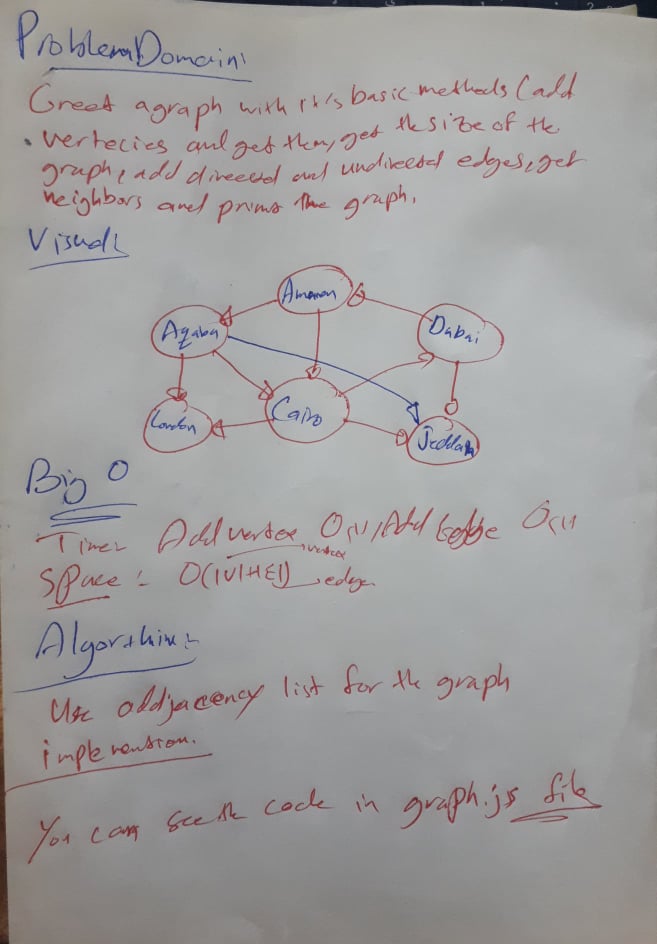 Problem Domain:
Creat a graph with it's basic methods (add
vertecies and get them, get the size of the
graph, add directed and undirected edges, get
neighbors and print the graph.
Visual:
Amman
Aqaba
Dubai
London
Cairo
Jeddah
Big O
Time: Add vertex O(1), Add edge O(1)
vertex
Space: O(|V|+|E|) edge
Algorthim:-
Use addjacency list for the graph
You can see the code in graph.js file